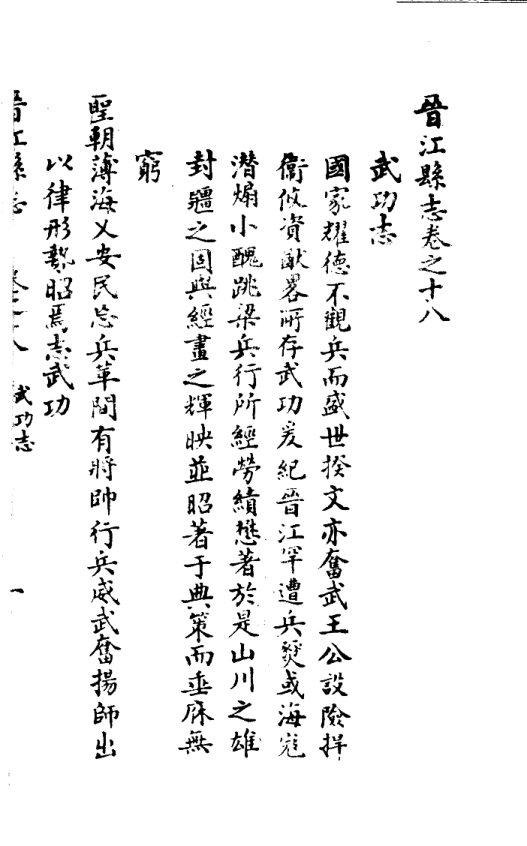 晉江縣志卷之十八
武功志
國家耀德不觀兵而盛世揆文亦奮武王公設險捍
衛攸資猷畧所存武功爰紀晉江罕遭兵燹或海寇
潛煽小醜跳梁兵行所經勞績懋著於是山川之雄
封疆之固與經畫之輝映並昭著于典策而垂庥無
窮
聖朝薄海乂安民忘兵革間有將帥行兵威武奮揚師出
以律形勢昭焉志武功
晉江縣志 卷之十八 武功志 一